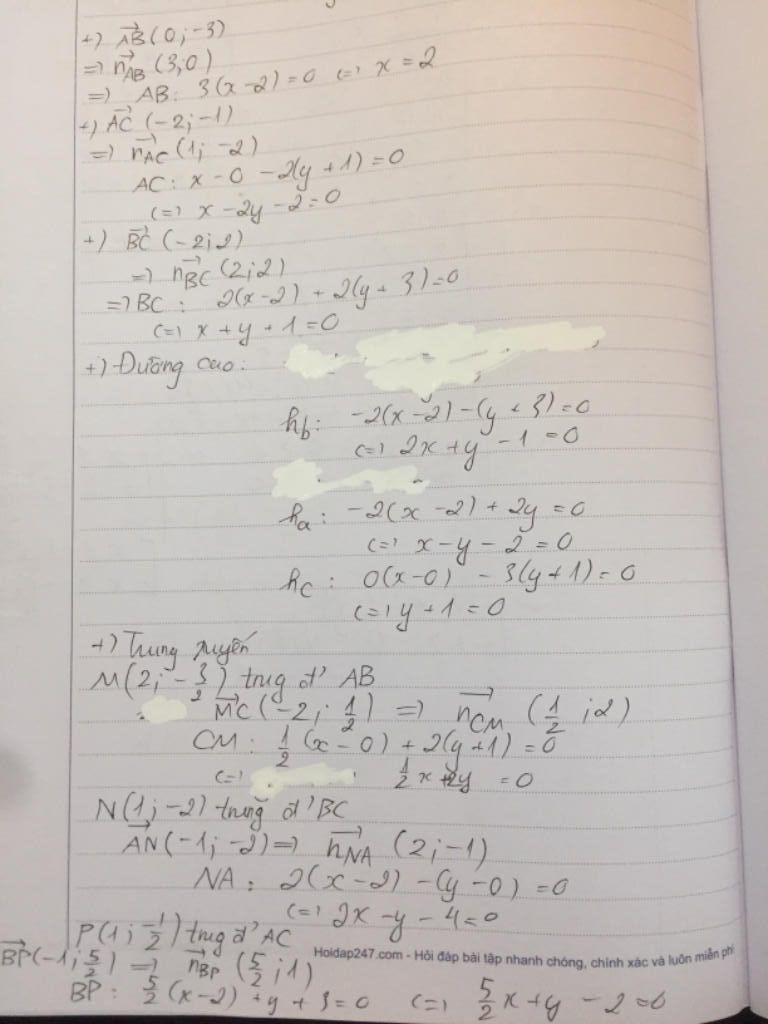 +) AB→ (0; -3)
=> n→AB (3, 0)
=> AB: 3(x - 2) = 0 <=> x = 2
+) AC→ (-2; -1)
=> n→AC (1; -2)
AC: x - 0 - 2(y + 1) = 0
<=> x - 2y - 2 = 0
+) BC→ (-2; 2)
=> n→BC (2; 2)
=> BC: 2(x - 2) + 2(y + 3) = 0
<=> x + y + 1 = 0
+) Đường cao:
hb: -2(x - 2) - (y + 3) = 0
<=> 2x + y - 1 = 0
ha: -2(x - 2) + 2y = 0
<=> x - y - 2 = 0
hc: 0(x - 0) - 3(y + 1) = 0
<=> y + 1 = 0
+) Trung tuyến
M(2; -3/2) trug đ' AB
MC→ (-2; 1/2) => n→CM (1/2; 2)
CM: 1/2 (x - 0) + 2(y + 1) = 0
<=> 1/2 x + 2y = 0
N(1; -2) trung đ' BC
AN→ (-1; -2) => n→NA (2; -1)
NA: 2(x - 2) - (y - 0) = 0
<=> 2x - y - 4 = 0
P(1; -1/2) trug đ' AC
Hoidap247.com - Hỏi đáp bài tập nhanh chóng, chính xác và luôn miễn phí
BP→ (-1; 5/2) => n→BP (5/2; 1)
BP: 5/2 (x - 2) + y + 3 = 0 <=> 5/2 x + y - 2 = 0